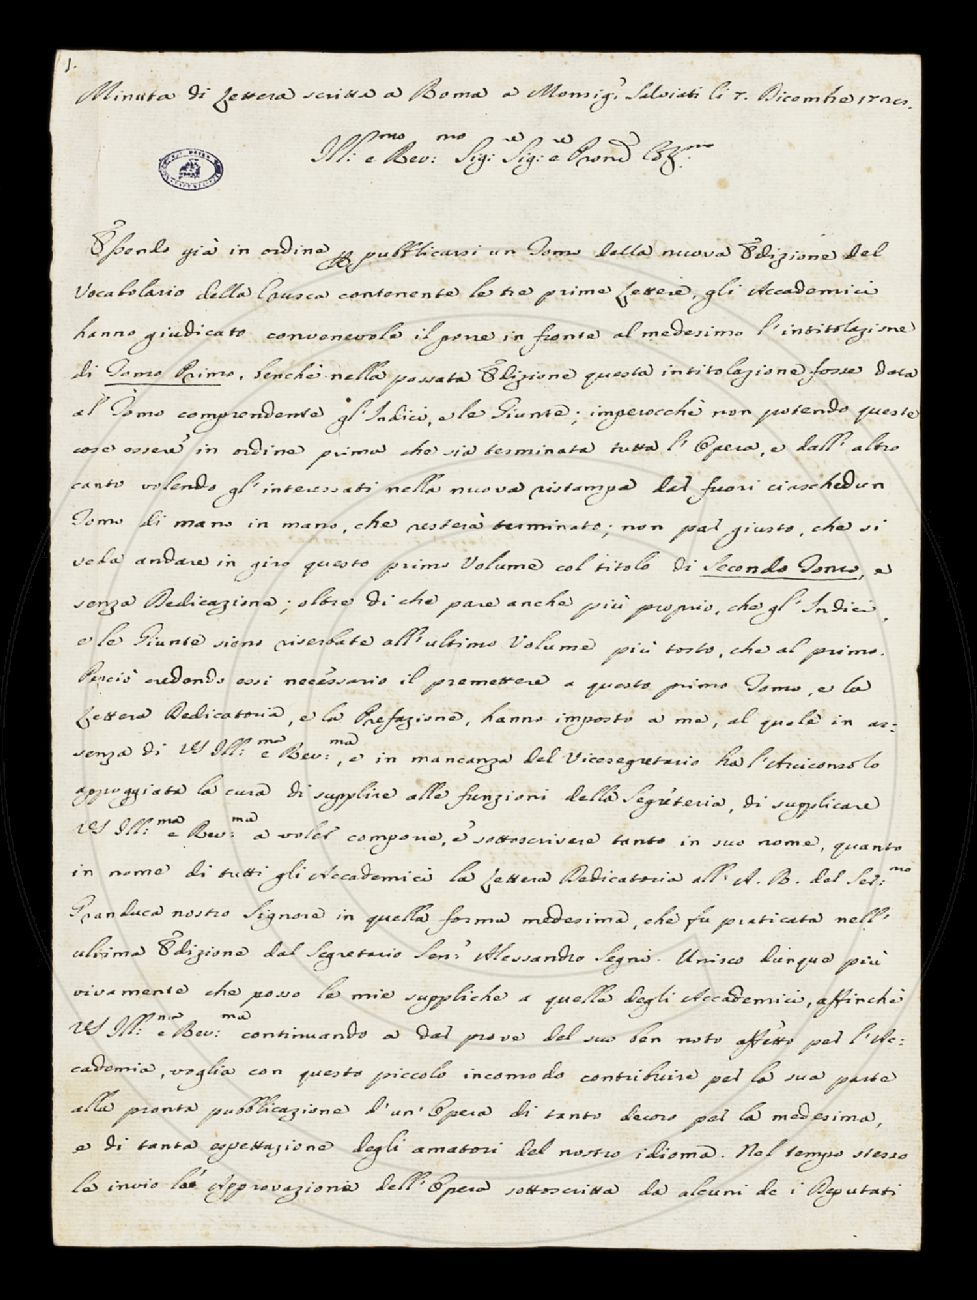 1.
Minuta di Lettera scritta a Roma a Monsig.r Salviati li 7. Dicembre
Ill:mo e Rev:mo Sig:re Sig:re e Pron'e
Essendo già in ordine p pubblicarsi un Tomo della nuova Edizione del
Vocabolario della Crusca contenente le tre prime Lettere, gli Accademici
hanno giudicato convenevole il porre in fronte al medesimo l'intitolazione
di Tomo Primo, benchè nella passata Edizione questa intitolazione fosse data
al Tomo comprendente gl'Indici, e le Giunte; imperocchè non potendo queste
cose essere in ordine prima che sia terminata tutta l'Opera, e dall'altro
canto volendo gl'interessati nella nuova ristampa dar fuori ciaschedun
Tomo di mano in mano, che resterà terminato; non par giusto, che si
veda andare in giro questo primo Volume col titolo di Secondo Tomo, e
senza Dedicazione; oltre di che pare anche più proprio, che gl'Indici,
e le Giunte sieno riserbate all'ultimo Volume più tosto, che al primo.
Perciò credendo essi necessario il premettere a questo primo Tomo, e la
Lettera Dedicatoria, e la Prefazione, hanno imposto a me, al quale in as=
senza di VS Ill:ma e Rev:ma, e in mancanza del Vicesegretario ha l'Arciconsolo
appoggiata la cura di supplire alle funzioni della Segreteria, di supplicare
VS Ill:ma e Rev:ma a voler comporre, e sottoscrivere tanto in suo nome, quanto
in nome di tutti gli Accademici la Lettera Dedicatoria all'A. R. del Ser:mo
Granduca nostro Signore in quella forma medesima, che fu praticata nell'
ultima Edizione dal Segretario Sen.r Alessandro Segni. Unisco dunque più
vivamente che posso le mie suppliche a quelle degli Accademici, affinchè
VS Ill:ma e Rev:ma continuando a dar prove del suo ben noto affetto per l'Ac=
cademia, voglia con questo piccolo incomodo contribuire per la sua parte
alla pronta pubblicazione d'un'Opera di tanto decoro per la medesima,
e di tanta espettazione degli amatori del nostro idioma. Nel tempo stesso
le invio le Approvazione dell'Opera sottoscritta da alcuni de i Deputati